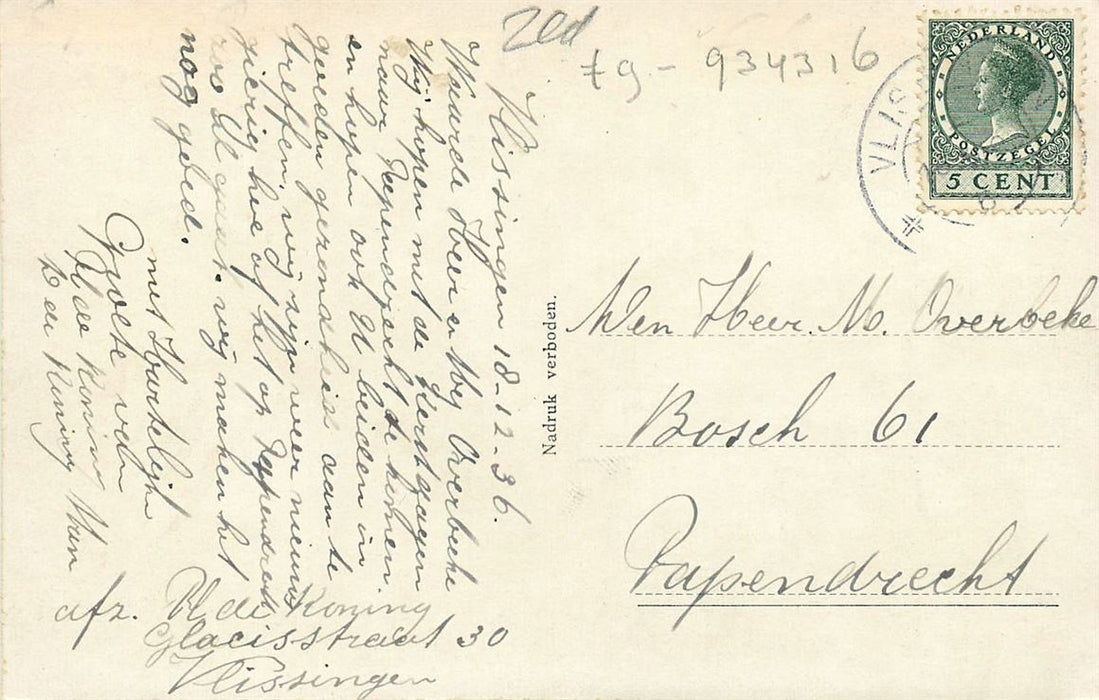 Zld
79 - 934316
NEDERLAND
POSTZEGEL
5 CENT
VLIS
Vlissingen 18-12-36.
Waarde Heer en Mej Overbeke
Wij hopen met de Kerstdagen
naar Papendrecht te komen
en hopen ook U beiden in
goeden gezondheid aan te
treffen. wij zijn weer nieuws
gierig hoe of het op Papendrecht
zoo al gaat. wij maken het
nog goed.
met Hartelijk
Groete van
de Koning
Den Heer M. Overbeke
Bosch 61
Papendrecht
Nadruk verboden.
afz. de Koning
Glacisstraat 30
Vlissingen